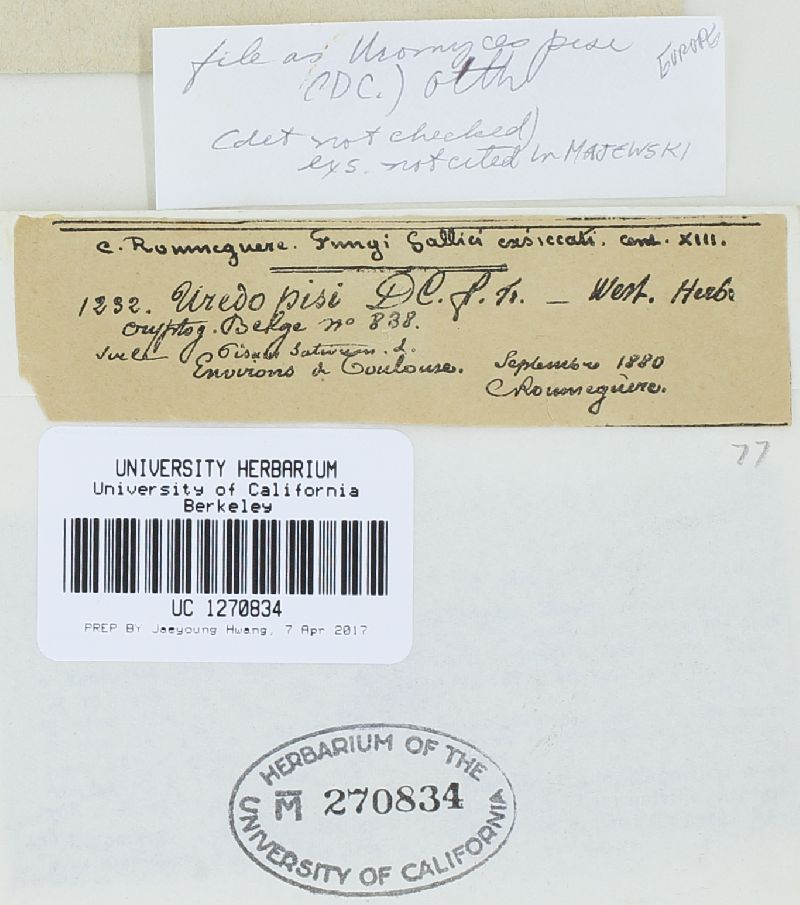 file as Uromyces pisi
(DC.) Otth
EUROPE
(det not checked)
exs. not cited in MAJEWSKI
C. Roumeguère. Fungi Gallici exsiccati. cent. XIII.
1232. Uredo pisi DC. f. fr. _ West. Herb.
cryptog. Belge no 838.
Sur le Pisum Sativum. L.
Environs de Toulouse. Septembre 1880
C. Roumeguère.
77
UNIVERSITY HERBARIUM
University of California
Berkeley
UC 1270834
PREP BY Jaeyoung Hwang, 7 Apr 2017
HERBARIUM OF THE
M 270834
UNIVERSITY OF CALIFORNIA